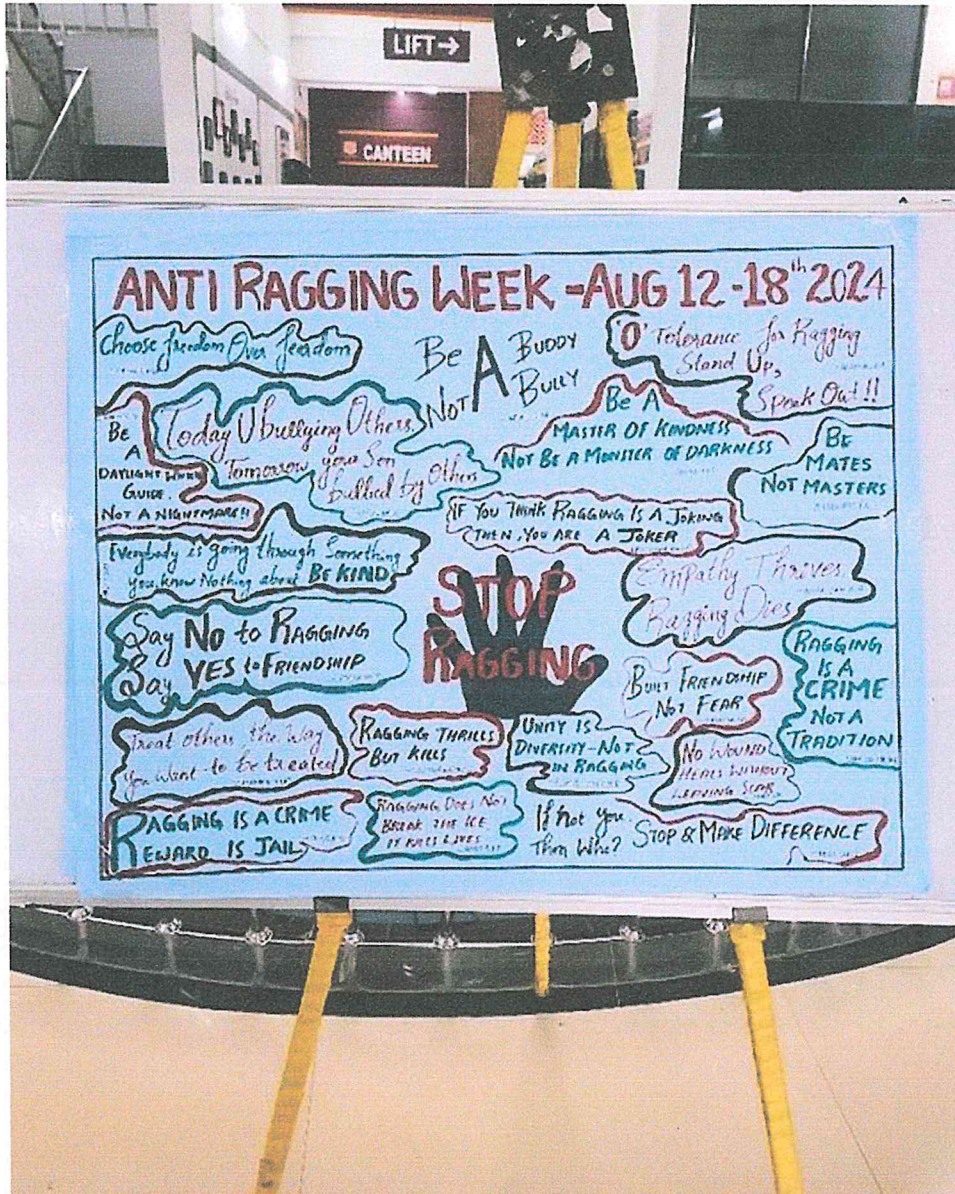 LIFT→
CANTEEN
ANTI RAGGING WEEK -AUG 12 -18th 2024
Choose freedom Over feardom
Be A BUDDY
NOT A BULLY
'0' Tolerance for Ragging
Stand Up,
Speak Out!!
Today U bullying Others
Tomorrow your Son
bullied by Others
Be A
MASTER OF KINDNESS
NOT BE A MONSTER OF DARKNESS
BE
A
DAYLIGHT
GUIDE.
NOT A NIGHTMARE!!
BE
MATES
NOT MASTERS
IF YOU THINK RAGGING IS A JOKING
THEN, YOU ARE A JOKER
Everybody is going through Something
you know Nothing about BE KIND
STOP
RAGGING
Empathy Thrives
Ragging Dies
Say NO to RAGGING
Say YES to FRIENDSHIP
BUILT FRIENDSHIP
NOT FEAR
RAGGING
IS A
CRIME
NOT A
TRADITION
Treat others the Way
you want to be treated
RAGGING THRILLS
BUT KILLS
UNITY IS
DIVERSITY-NOT
IN RAGGING
NO WOUND
HEALS WITHOUT
LEAVING SCAR.
RAGGING IS A CRIME
REWARD IS JAIL
RAGGING DOES NOT
BREAK THE ICE
IT KILLS LIVES
If not you
Then Who?
STOP & MAKE DIFFERENCE